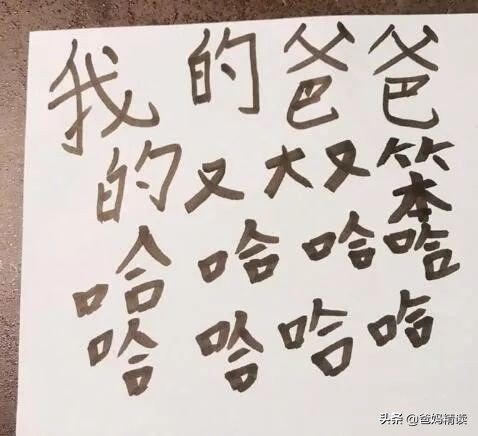 我的爸爸
的又大又笨
哈哈哈哈
哈哈哈哈
头条 @爸妈精读